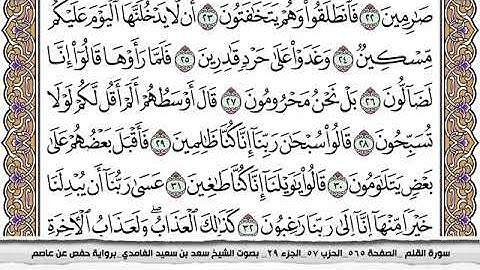 صَٰرِمِينَ ۝٢٢ فَٱنطَلَقُوا۟ وَهُمْ يَتَخَٰفَتُونَ ۝٢٣ أَن لَّا يَدْخُلَنَّهَا ٱلْيَوْمَ عَلَيْكُم
مِّسْكِينٌ ۝٢٤ وَغَدَوْا۟ عَلَىٰ حَرْدٍ قَٰدِرِينَ ۝٢٥ فَلَمَّا رَأَوْهَا قَالُوٓا۟ إِنَّا
لَضَآلُّونَ ۝٢٦ بَلْ نَحْنُ مَحْرُومُونَ ۝٢٧ قَالَ أَوْسَطُهُمْ أَلَمْ أَقُل لَّكُمْ لَوْلَا
تُسَبِّحُونَ ۝٢٨ قَالُوا۟ سُبْحَٰنَ رَبِّنَآ إِنَّا كُنَّا ظَٰلِمِينَ ۝٢٩ فَأَقْبَلَ بَعْضُهُمْ عَلَىٰ
بَعْضٍ يَتَلَٰوَمُونَ ۝٣٠ قَالُوا۟ يَٰوَيْلَنَآ إِنَّا كُنَّا طَٰغِينَ ۝٣١ عَسَىٰ رَبُّنَآ أَن يُبْدِلَنَا
خَيْرًا مِّنْهَآ إِنَّآ إِلَىٰ رَبِّنَا رَٰغِبُونَ ۝٣٢ كَذَٰلِكَ ٱلْعَذَابُ ۖ وَلَعَذَابُ ٱلْءَاخِرَةِ
سورة القلم _الصفحة ٥٦٥_الحزب ٥٧_الجزء ٢٩_ بصوت الشيخ سعد بن سعيد الغامدي_برواية حفص عن عاصم